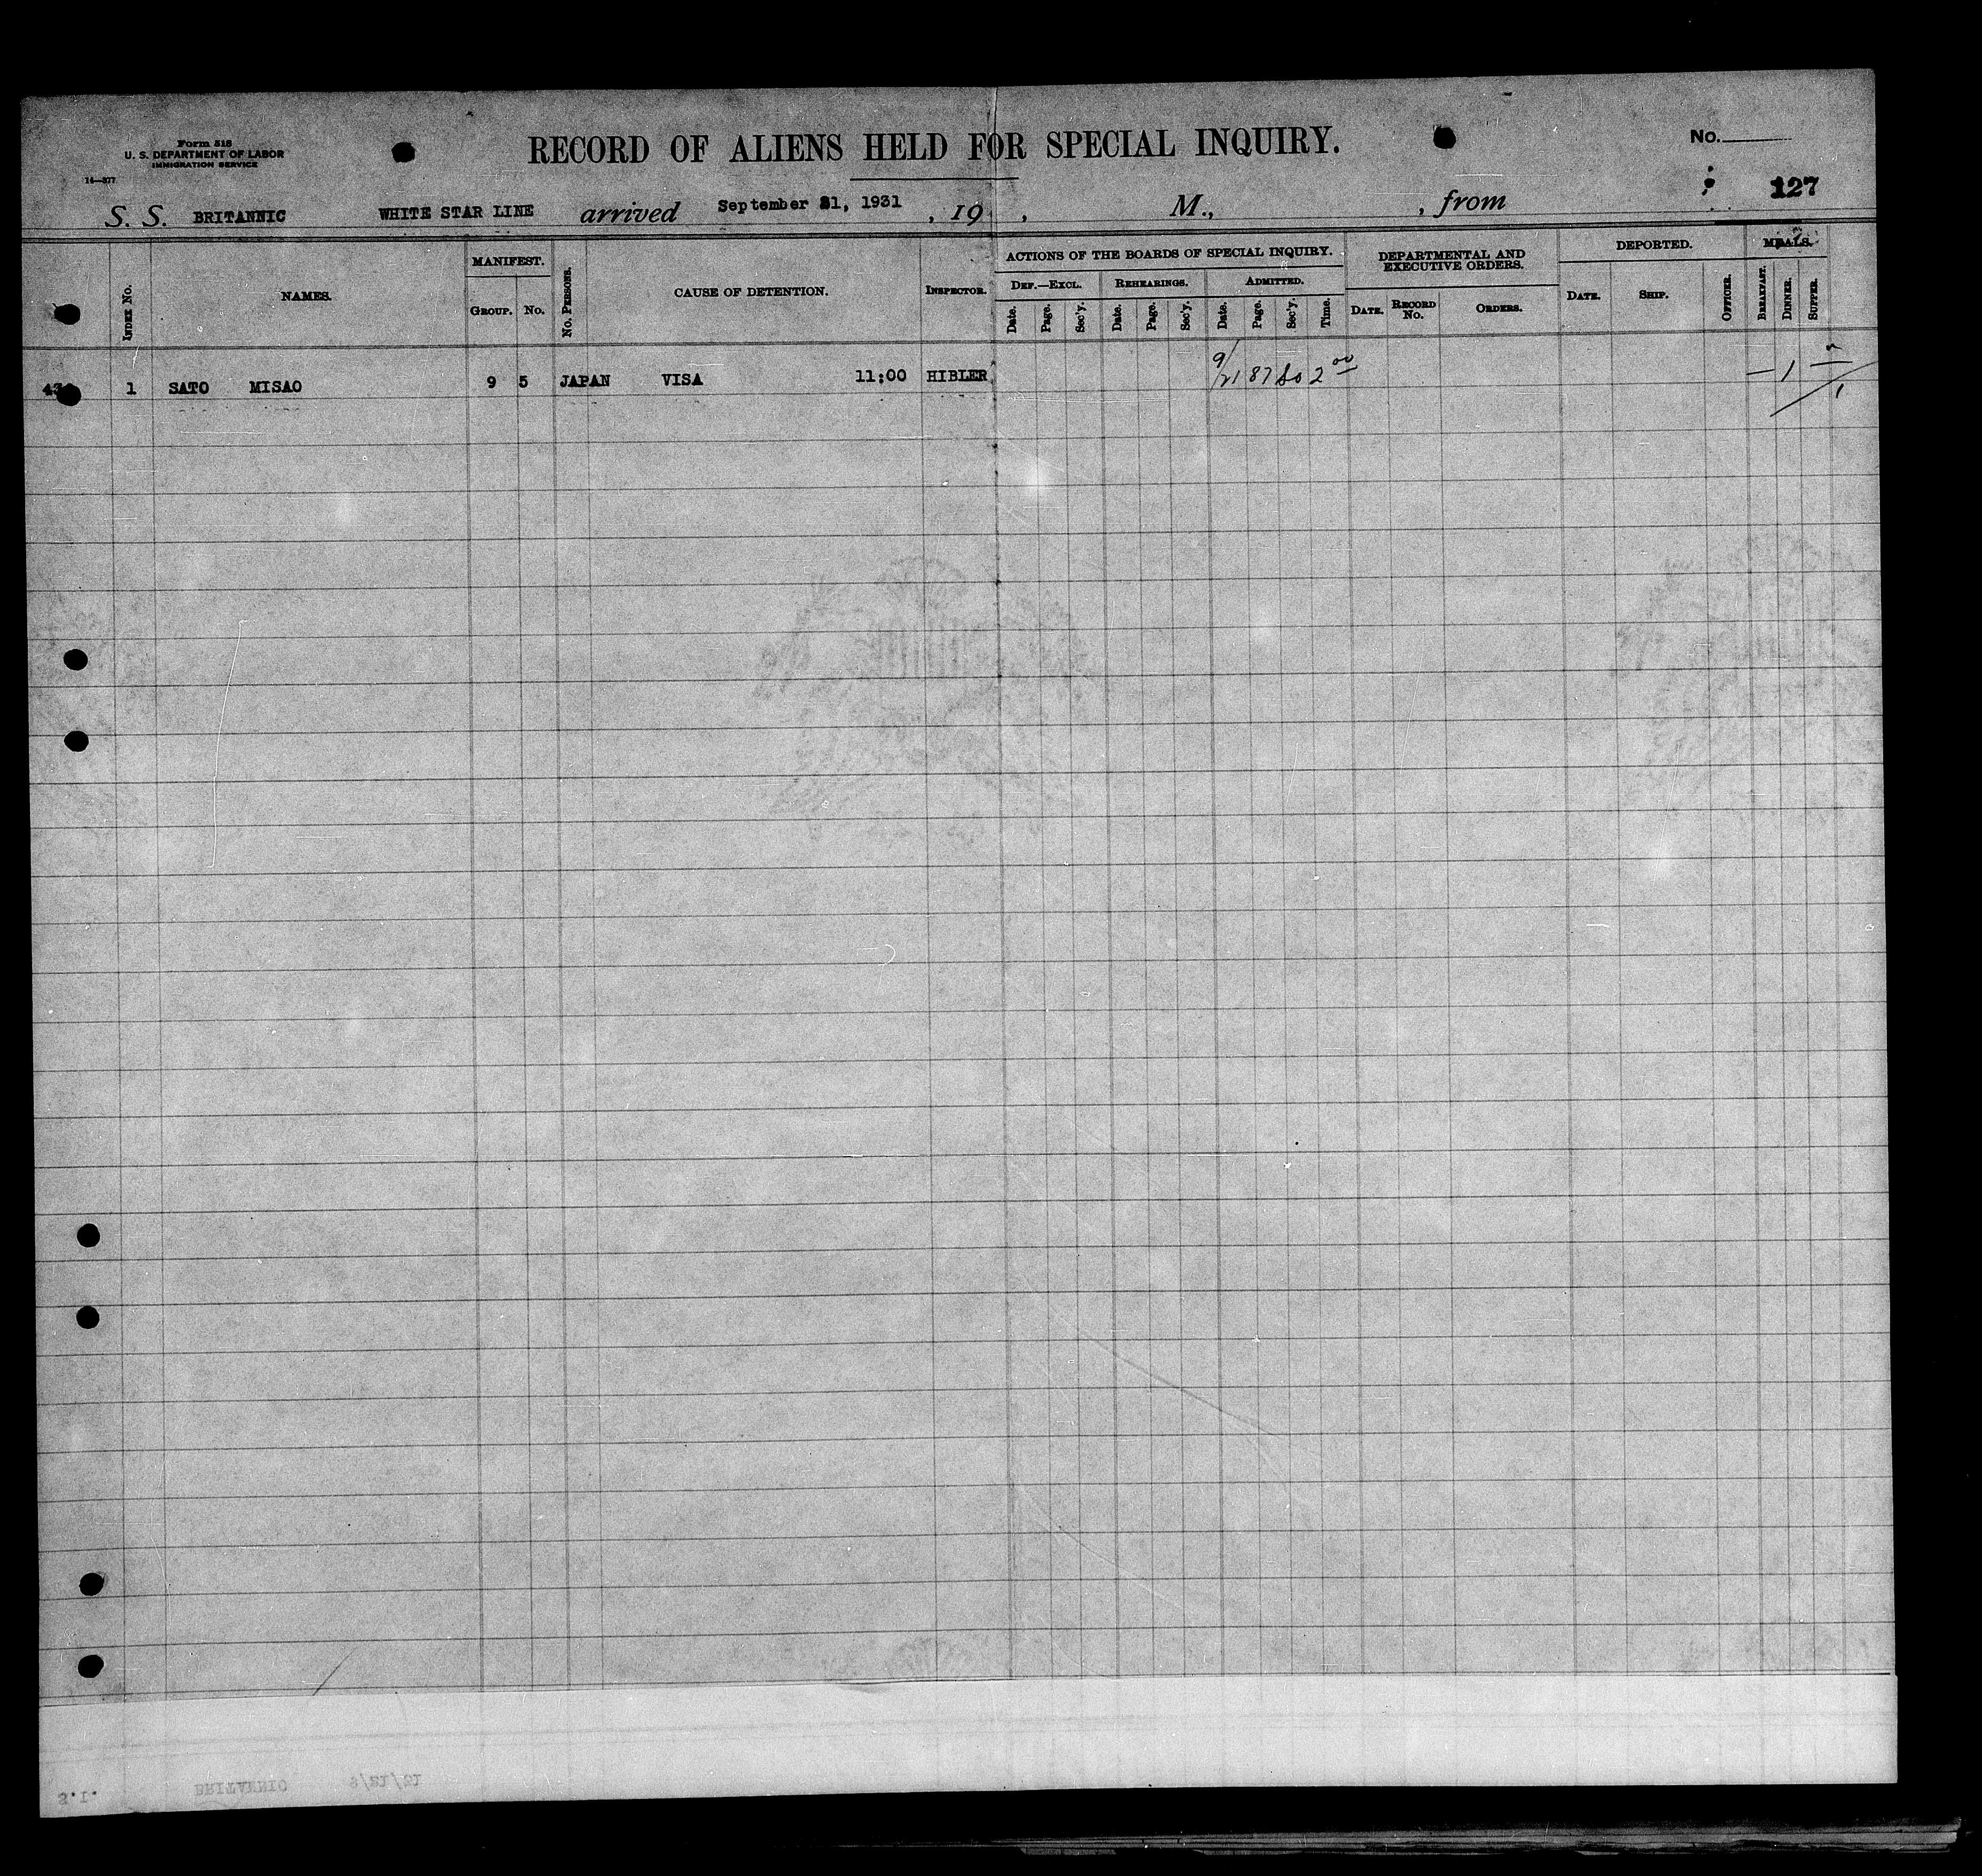 Form 518
U. S. DEPARTMENT OF LABOR
IMMIGRATION SERVICE
14—377
RECORD OF ALIENS HELD FOR SPECIAL INQUIRY.
No.
127
S. S. BRITANNIC WHITE STAR LINE arrived September 21, 1931 , 19 , M., , from
INDEX No.
NAMES.
MANIFEST.
GROUP. No.
No. PERSONS.
CAUSE OF DETENTION.
INSPECTOR.
ACTIONS OF THE BOARDS OF SPECIAL INQUIRY.
DEF.—EXCL. REHEARINGS. ADMITTED.
Date. Page. Sec'y. Date. Page. Sec'y. Date. Page. Sec'y. Time.
DEPARTMENTAL AND
EXECUTIVE ORDERS.
DATE. RECORD No. ORDERS.
DEPORTED.
DATE. SHIP. OFFICER.
MEALS.
BREAKFAST. DINNER. SUPPER.
1 SATO MISAO 9 5 JAPAN VISA 11:00 HIBLER 9/21 87 2 00 — 1 —
1
S.I. BRITANNIC